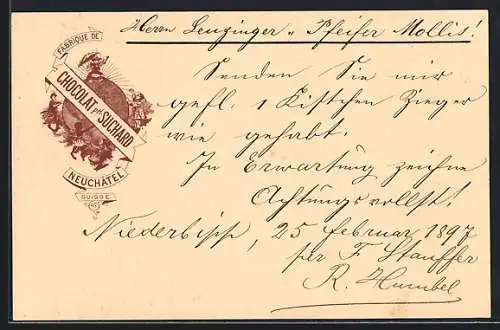 FABRIQUE DE
CHOCOLAT PH. SUCHARD
NEUCHÂTEL
SUISSE
Herrn Lenzinger u Pfeifer Mollis!
Senden Sie mir
gefl. 1 Kistchen Zieger
wie gehabt.
In Erwartung zeichne
Achtungsvollst!
Niederbipp, 25 februar 1897
per F Stauffer
R. Humbel